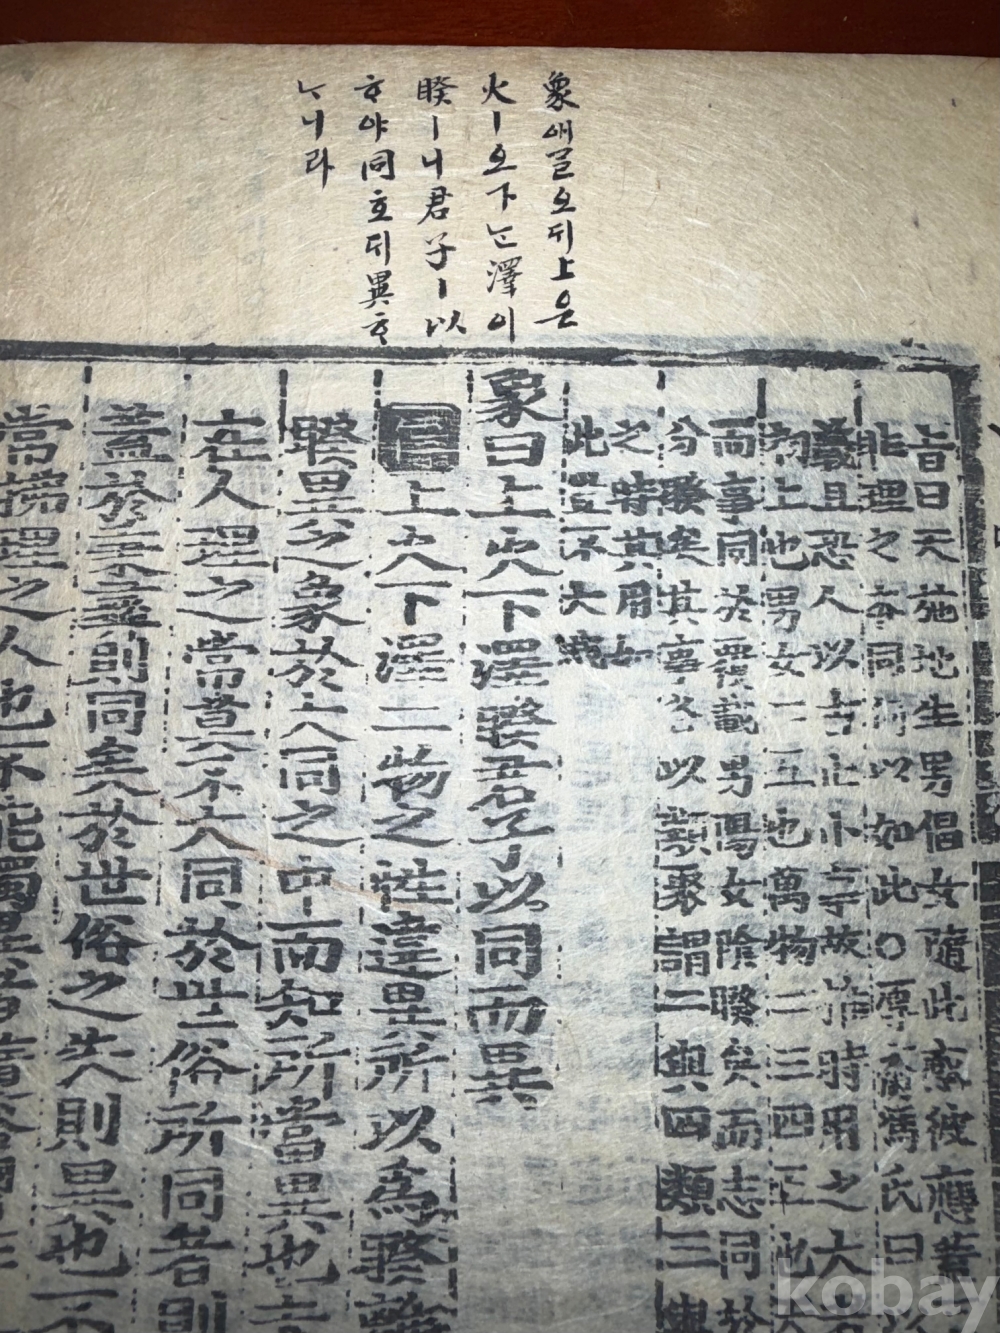 象애글오듸上은
火ㅣ오下ᄂᆞᆫ澤이
睽ㅣ니君子ㅣ以
ᄒᆞ야同호듸異ᄒᆞ
ᄂᆞ니라
旨曰天施地生男倡女隨此感彼應蓋
非理之本同何以如此○厚齋馮氏曰以
義且恐人以吉止小事故指時用之大
物上也男女一二五也萬物二三四五也
而事同於覆載男陽女陰睽矣而志同於
分睽矣其事各以類聚謂二與四類三與
之時其用如
此豈不大哉
象曰上火下澤睽君子以同而異
上火下澤二物之性違異所以爲睽離
睽異之象於大同之中而知所當異也夫
在人理之常莫不大同於世俗所同者則
蓋於秉彝則同矣於世俗之失則異也不
常拂理之人也不能獨異者隨俗習
kobay